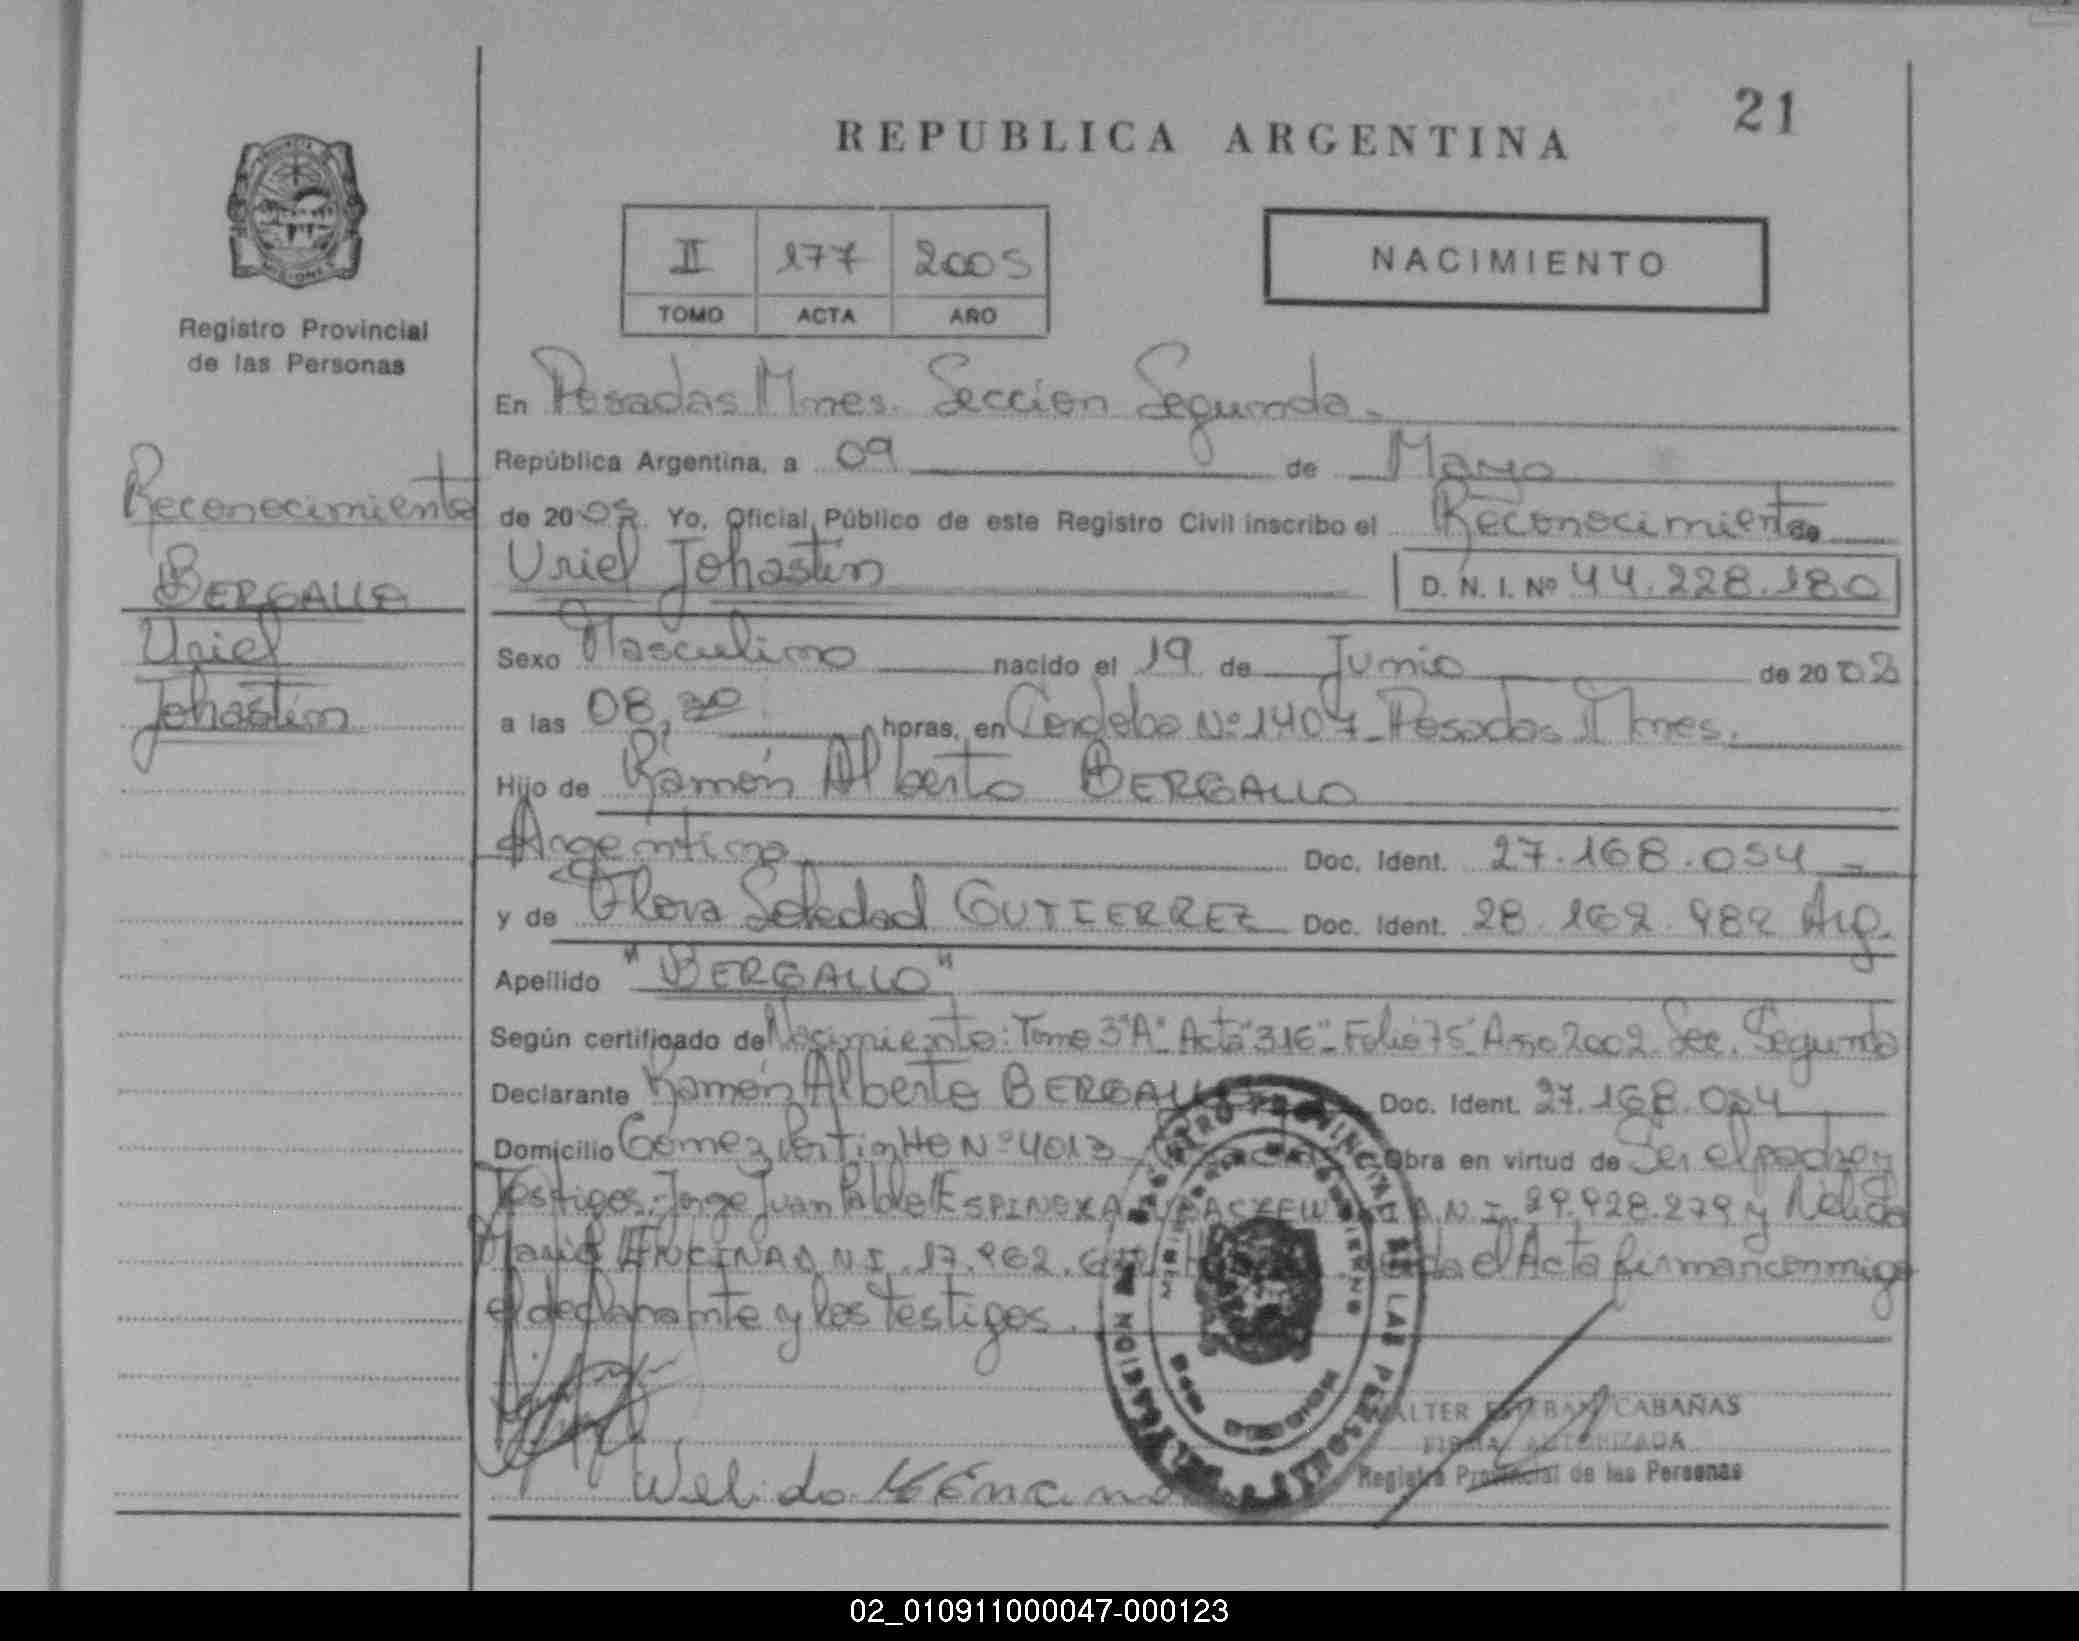 21
REPUBLICA ARGENTINA
II 177 2005
TOMO ACTA AÑO
NACIMIENTO
Registro Provincial
de las Personas
Reconocimiento
BERGALLO
Uriel
Johastin
En Posadas Mnes. Seccion Segunda.
República Argentina, a 09 de Mayo
de 2005. Yo, Oficial Público de este Registro Civil inscribo el Reconocimiento de
Uriel Johastin D. N. I. Nº 44.228.180
Sexo Masculino nacido el 19 de Junio de 2002
a las 08,30 horas, en Cordoba Nº 1407 - Posadas Mnes.
Hijo de Ramón Alberto BERGALLO
Argentino Doc. Ident. 27.168.054
y de Flora Soledad GUTIERREZ Doc. Ident. 28.162.982 Arg.
Apellido "BERGALLO"
Según certificado de Nacimiento: Tomo 3"A" Acta "316" - Folio 75 - Año 2002. Sec. Segunda
Declarante Ramón Alberto BERGALLO Doc. Ident. 27.168.054
Domicilio Gomez Portinho Nº 4013 Obra en virtud de Ser el padre y
Testigos: Jorge Juan Pablo ESPINOZA D.N.I. 29.928.279 y Nelida
Maria ENCINA D.N.I. 17.962. el Acta firman conmigo
el declarante y los Testigos.
REGISTRO PROVINCIAL DE LAS PERSONAS
WALTER ESTEBAN CABAÑAS
FIRMA AUTORIZADA
Registro Provincial de las Personas
02_010911000047-000123